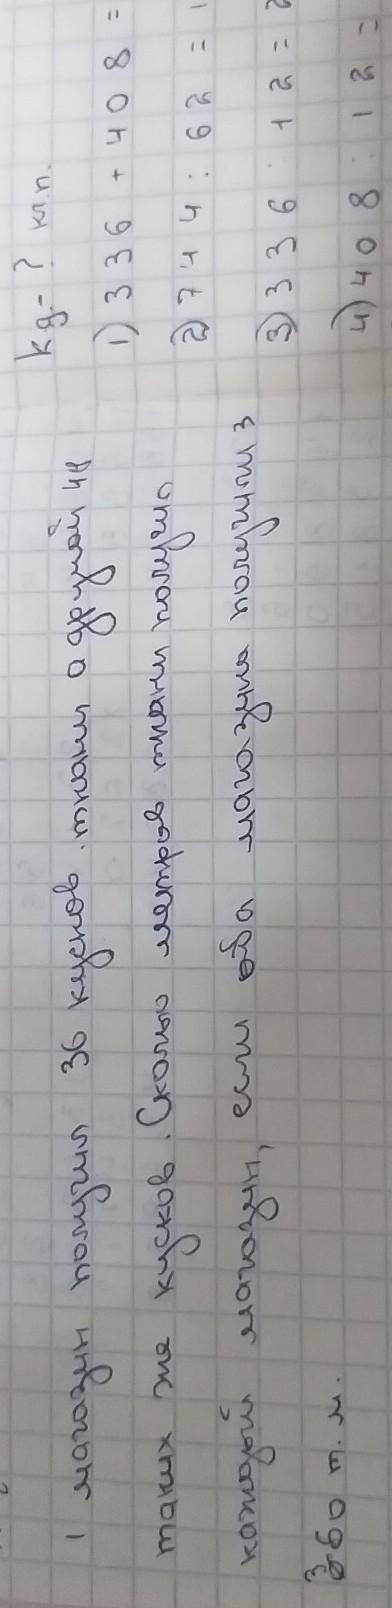 1 магазин получил 36 кусков ткани а другой 48
таких же кусков. Сколько метров ткани получил
каждый магазин, если оба магазина получили 3
360 т. м.
kg-? кт.п.
1) 336 + 408 =
2) 744 : 62 = 1
3) 336 : 12 = 2
4) 408 : 12 =